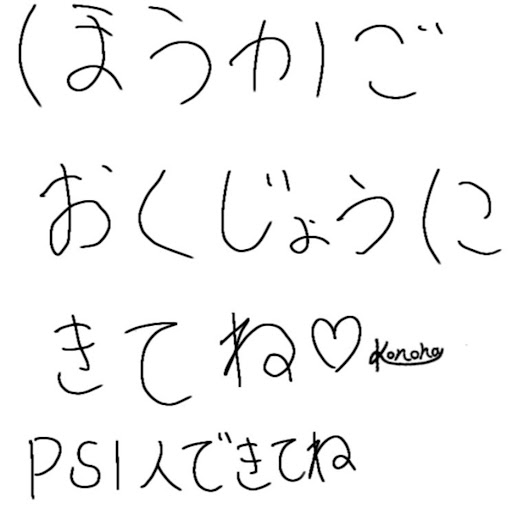 ほうかご
おくじょうに
きてね♡Konoha
PS1人できてね